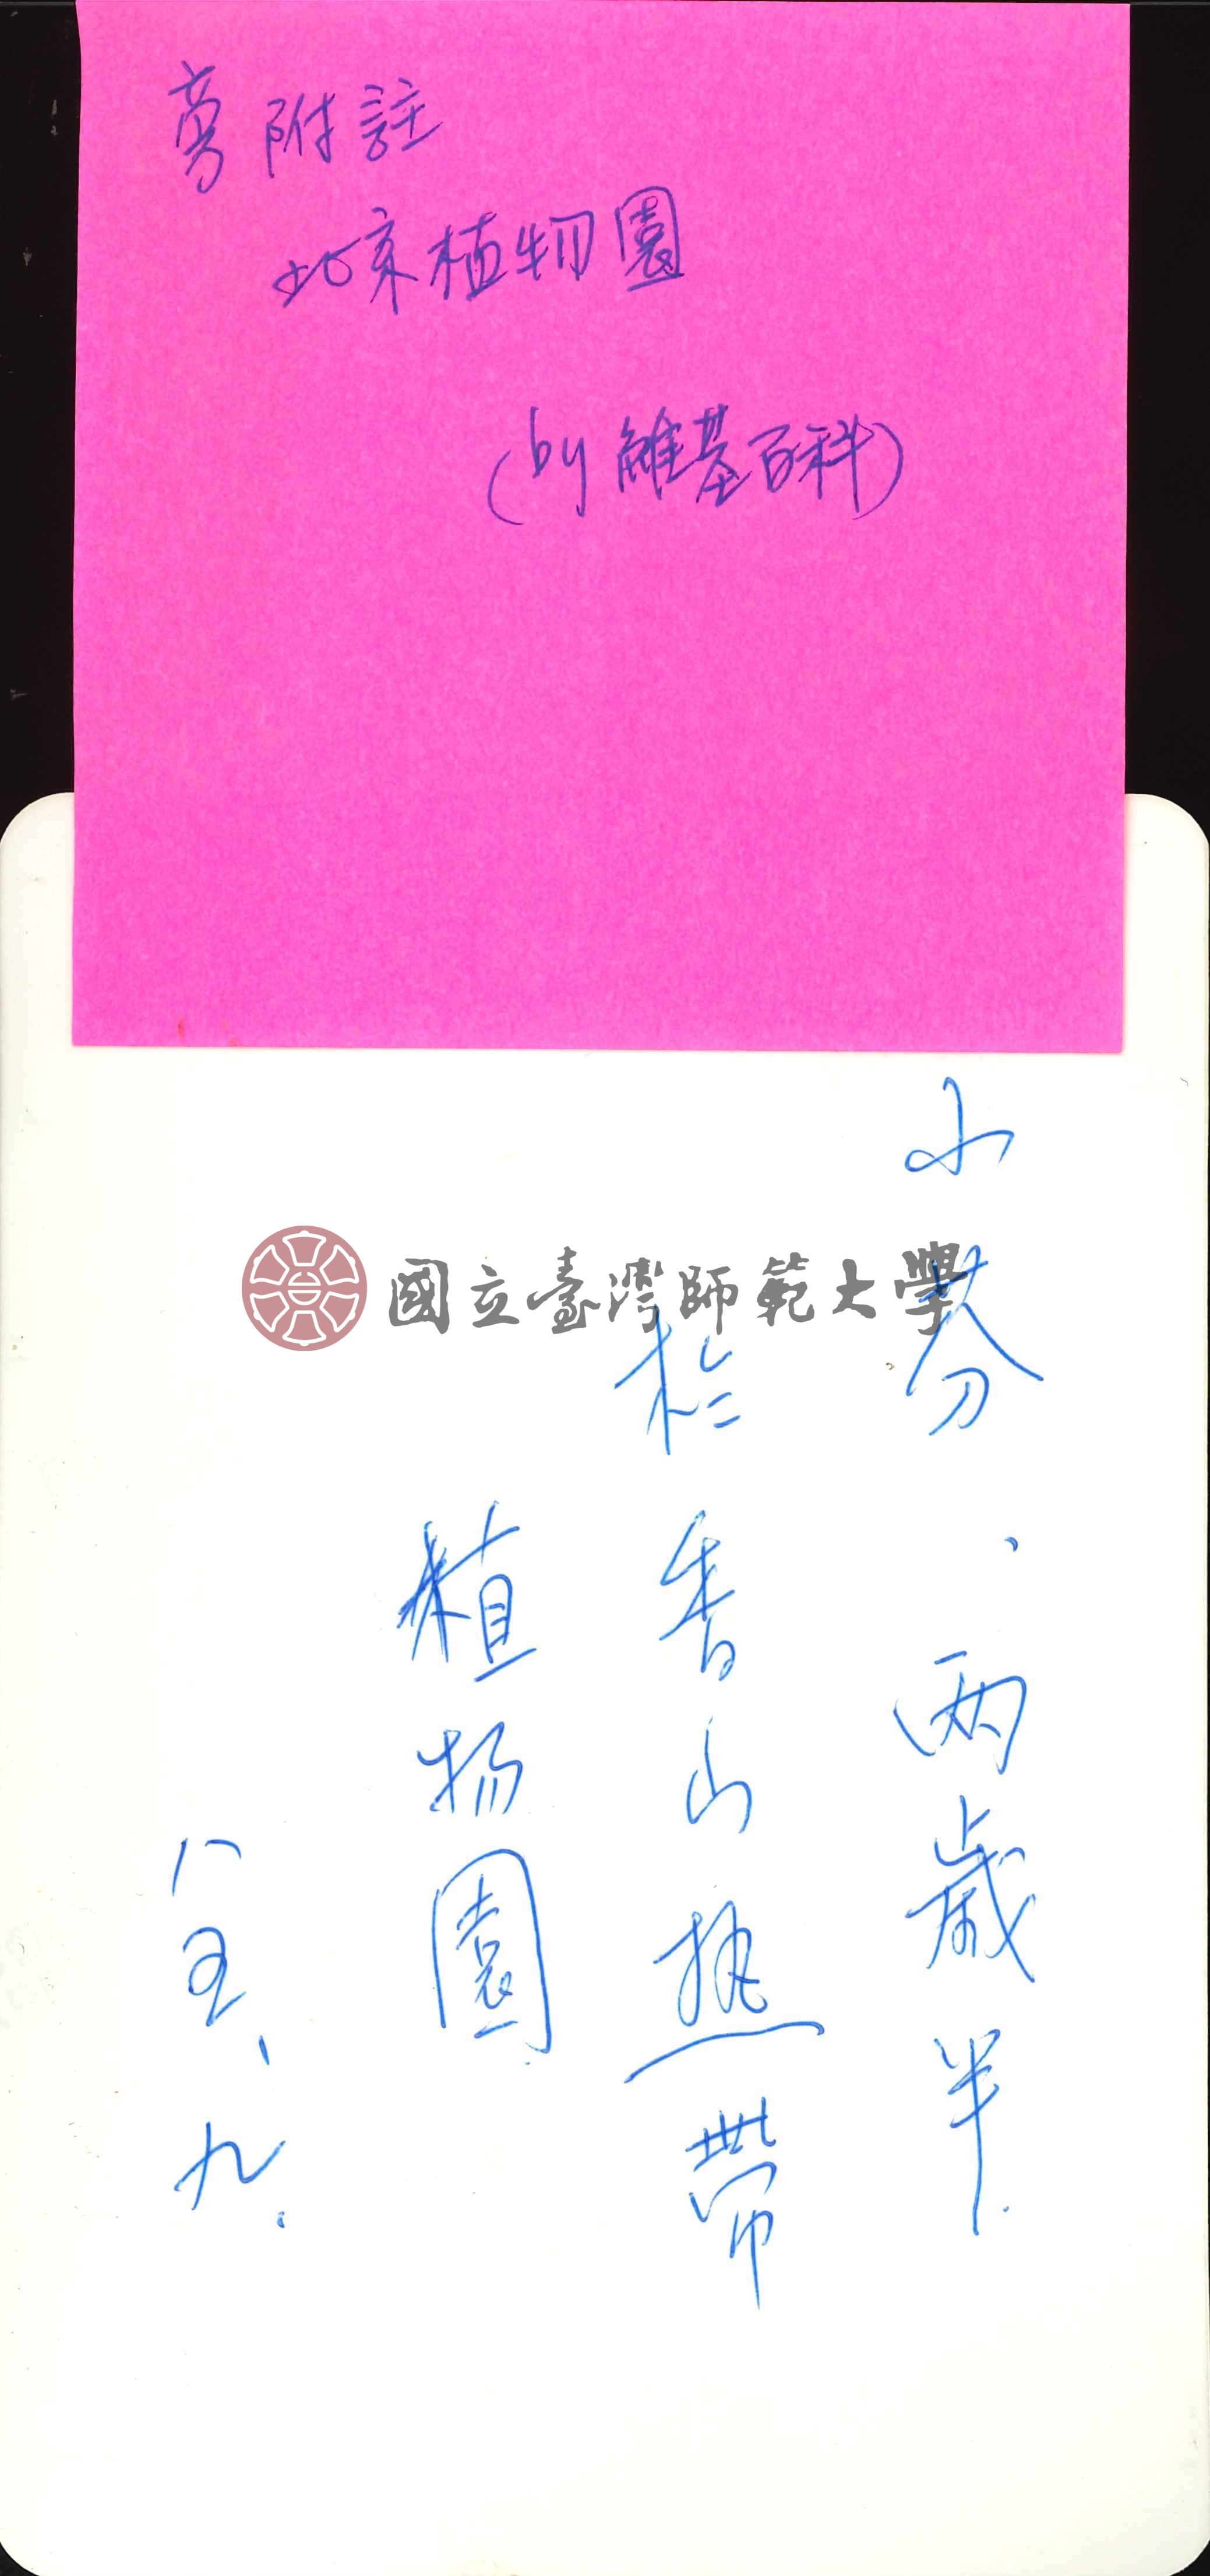 附註
北京植物園
(by 維基百科)
國立臺灣師範大學
小芬、兩歲半.
於香山熱帶
植物園
八五、九.